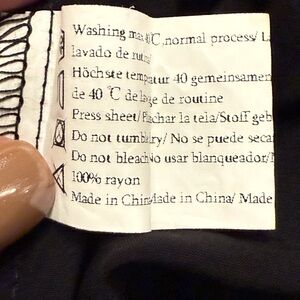 Washing max 40℃ normal process/ La
lavado de rutin
Höchste temp tur 40 gemeinsamen
de 40 ℃ de la e de routine
Press sheet/ Plachar la tela/Stoff geb
Do not tumb ry/ No se puede seca
Do not bleach No usar blanqueador/N
100% rayon
Made in Chin Made in China/ Made